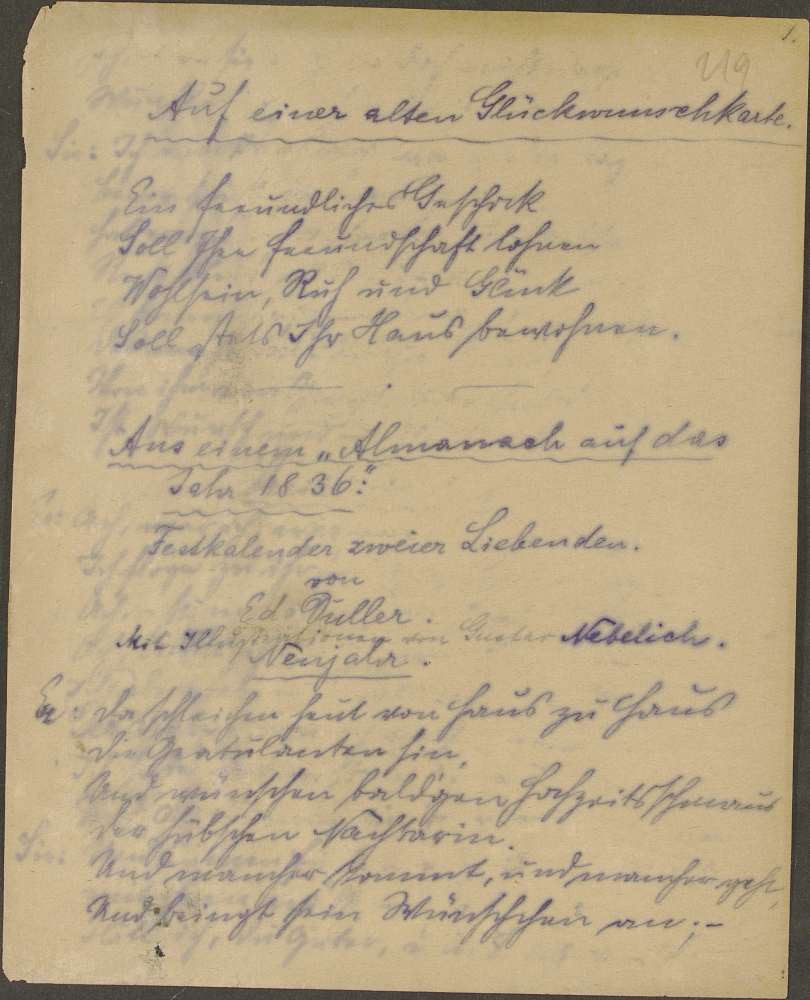 1.
219
Auf einer alten Glückwunschkarte.
Ein freundliches Geschick
Soll Ihre Freundschaft lohnen
Wohlsein, Ruh und Glück
Soll stets Ihr Haus bewohnen.
Aus einem „Almanach auf das
Jahr 1836:"
Festkalender zweier Liebenden.
von
Ed. Duller.
Mit Illustrationen von Gustav Nebelich.
Neujahr.
Er: Da schleichen heut von Haus zu Haus
Die Gratulanten hin,
Und wünschen bald'gen Hochzeitsschmaus
Der hübschen Nachbarin.
Und mancher kommt, und mancher geht,
Und bringt sein Wünschchen an;-